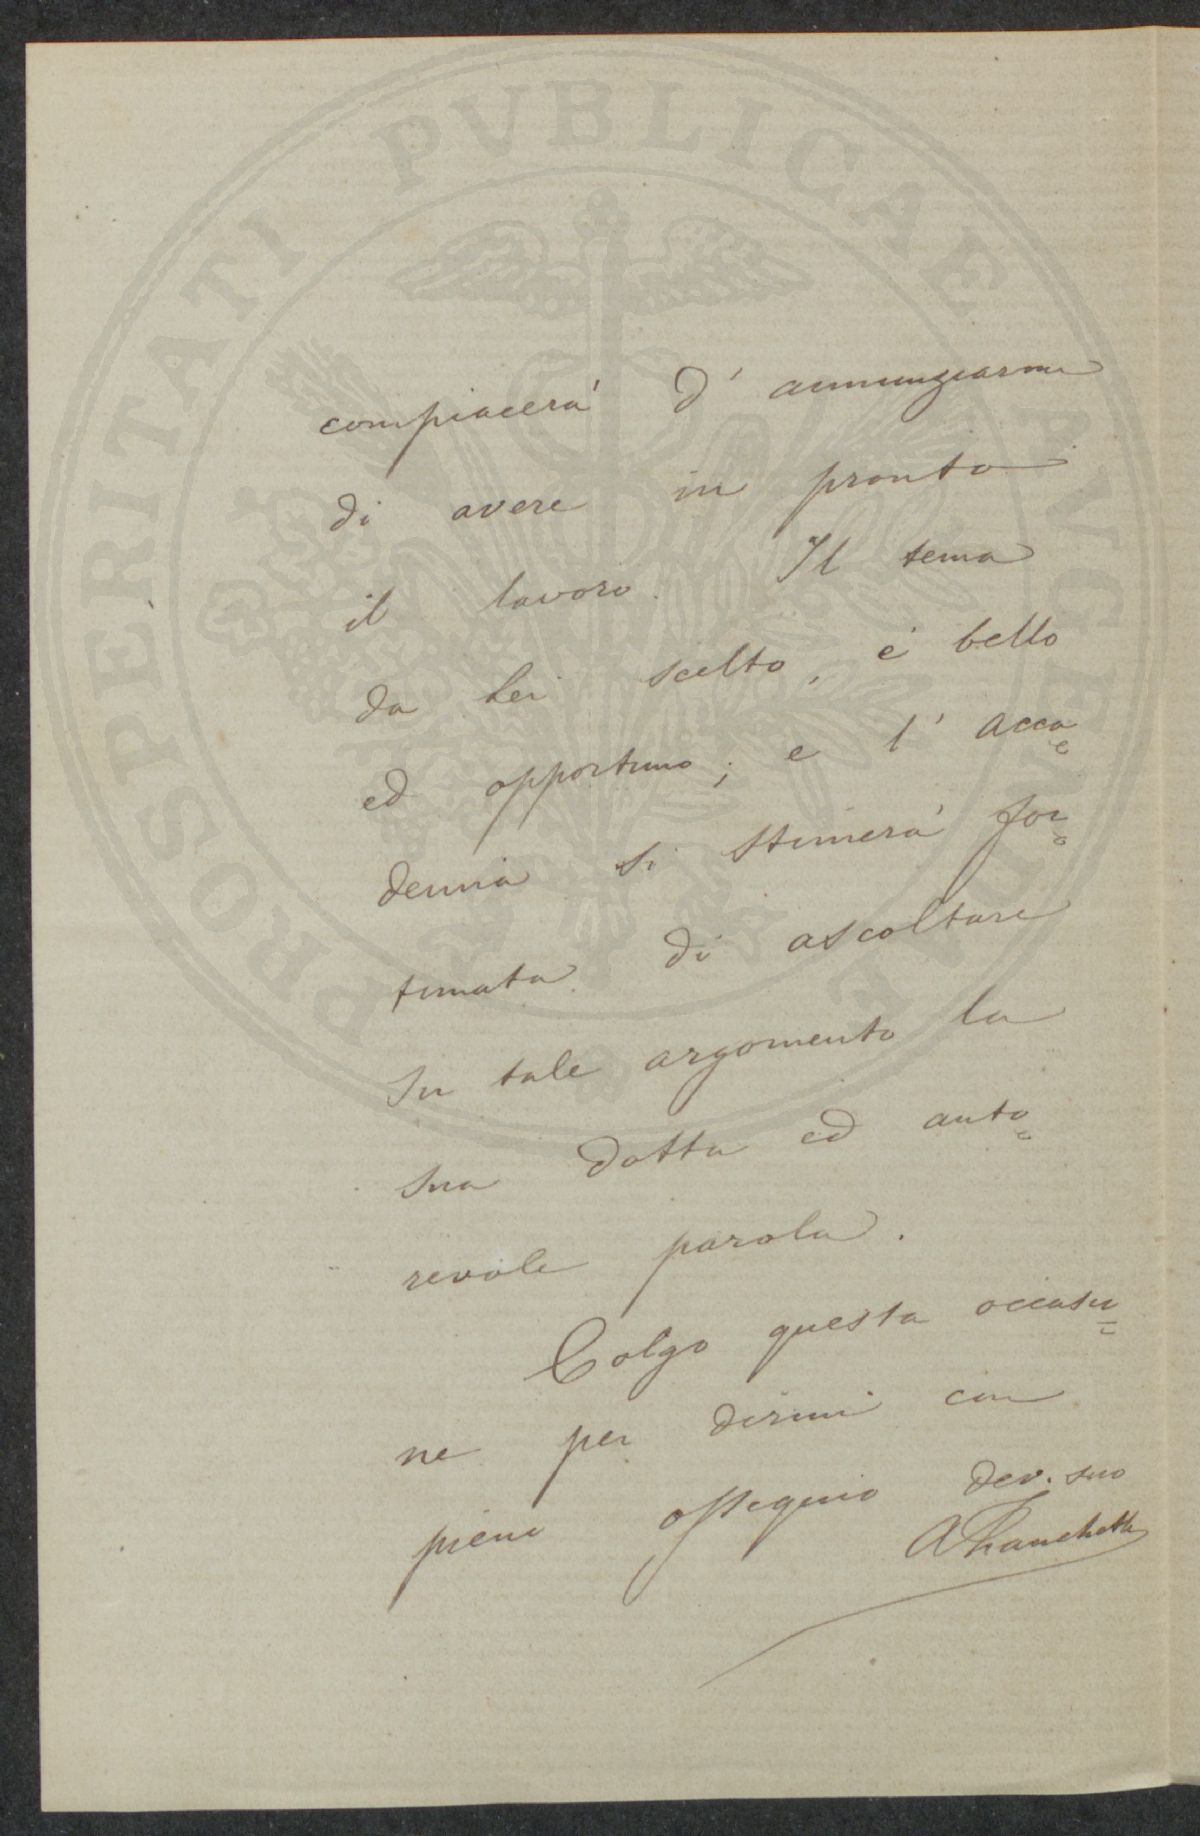 PROSPERITATI PVBLICAE AVGENDAE
compiacerà d'annunziarmi
di avere in pronto
il lavoro. Il tema
da Lei scelto, è bello
ed opportuno; e l'Acca=
demia si stimerà for=
tunata di ascoltare
su tale argomento la
sua dotta ed auto=
revole parola.
Colgo questa occasio=
ne per dirmi con
pieno ossequio dev. suo